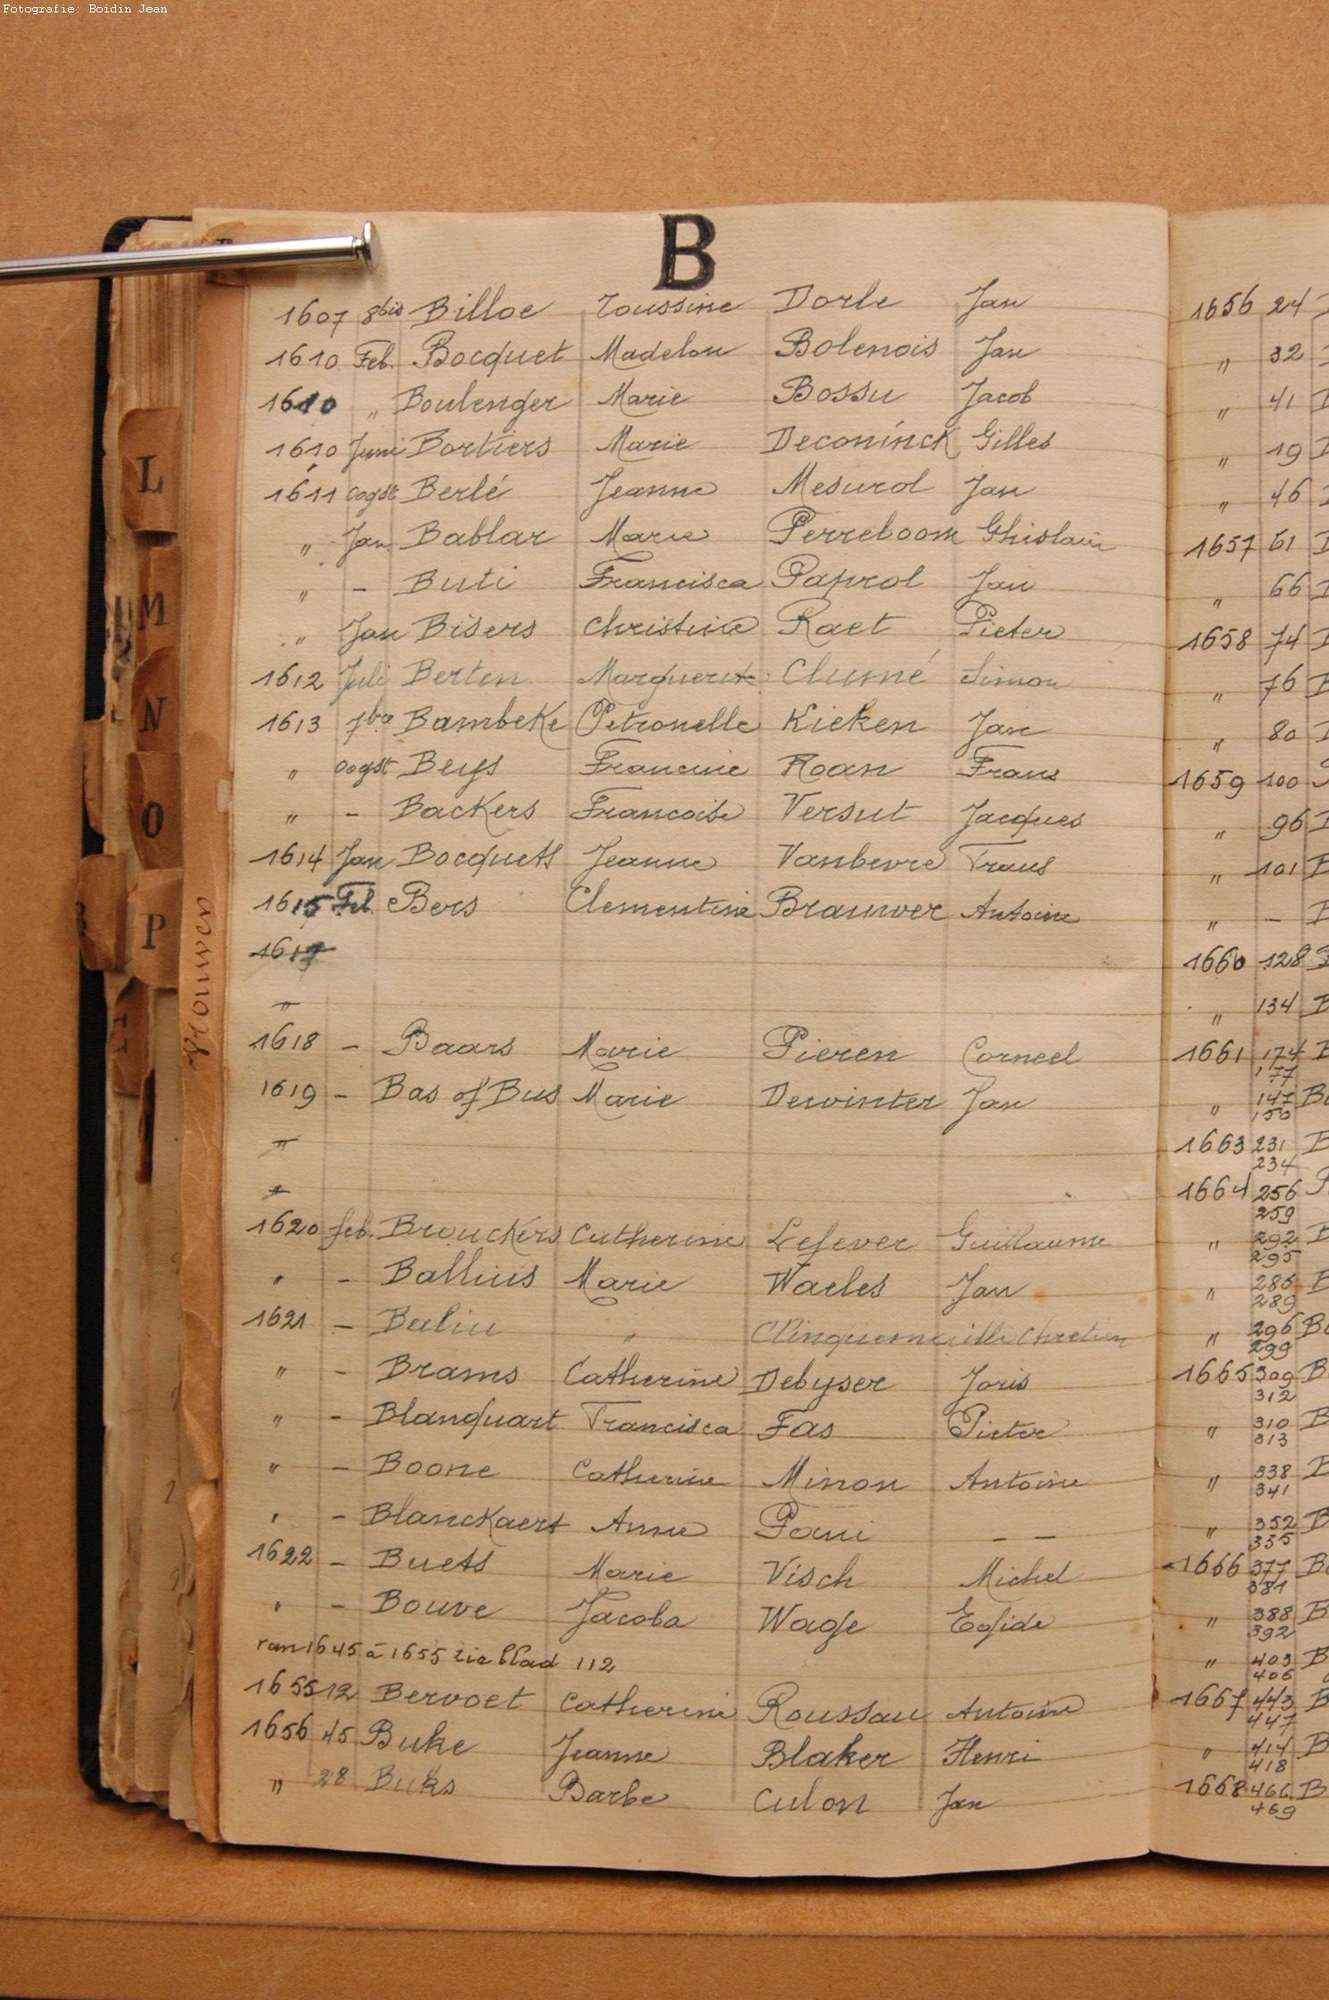 Fotografie: Boidin Jean
B
1607 8bis Billoe Toussine Dorle Jan
1610 Feb. Bocquet Madelon Bolenois Jan
1610 " Boulenger Marie Bossu Jacob
1610 Juni Bortiers Marie Deconinck Gilles
1611 oogst Berlé Jeanne Mesurol Jan
" Jan Bablar Marie Perreboom Ghislain
" - Buti Francisca Paprol Jan
" Jan Bisers Christine Raet Pieter
1612 Juli Berten Marguerite Clumé Simon
1613 7bre Bambeke Petronelle Kieken Jan
" oogst Beys Francine Roan Frans
" - Backers Francoise Versut Jacques
1614 Jan Bocquets Jeanne Vanbevre Frans
1615 Feb. Bers Clementine Brauwer Antoine
1617
"
1618 - Baars Marie Pieren Corneel
1619 - Bas of Bus Marie Dewinter Jan
"
"
1620 feb. Brouckers Catherine Lefever Guillaume
" - Ballius Marie Waeles Jan
1621 - Baliu " Chretien
" - Brams Catherine Debyser Joris
" - Blanquart Francisca Fas Pieter
" - Boone Catherine Minon Antoine
" - Blanckaert Anne Pani - -
1622 - Buets Marie Visch Michel
" - Bouve Jacoba Wage Egide
van 1645 à 1655 zie blad 112
1655 12 Bervoet Catherine Roussau Antoine
1656 45 Buke Jeanne Blaker Henri
" 28 Buks Barbe Culon Jan
1656 24
" 32
" 41
" 19
" 46
1657 61
" 66
1658 74
" 76
" 80
1659 100
" 96
" 101
" -
1660 128
" 134
1661 174
177
" 147
150
1663 231
234
1664 256
259
" 292
295
" 286
289
" 296
299
1665 309
312
" 310
313
" 338
341
" 352
355
1666 377
381
" 388
392
" 403
406
1667 443
447
" 414
418
1668 466
469
L
M
N
O
P
Vrouwen